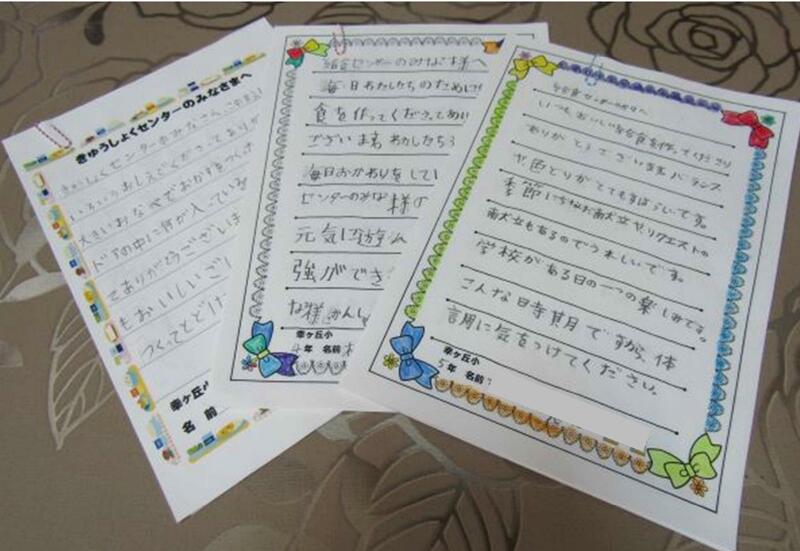 きゅうしょくセンターのみなさまへ
きゅうしょくセンターのみなさん、この
いろいろおしえてくださってありが
大きいおなべでおかずをつくっ
ドアの中に何が入っている
てありがとうございま
もおいしいごし
つくってとどけ
幸ヶ丘小
名前
給食センターのみなさま様へ
毎日わたしたちのために
食を作ってくださってあり
ございます。わたしたち
毎日おかわりをしてい
センターのみな様の
元気に遊ん
強ができ
な様かんし
幸ヶ丘小
4年 名前
給食センターの方々へ
いつもおいしい給食を作ってくださり
ありがとうございます。バランス
や色どりがとてもすばらしいです。
季節にちなんだ献立やリクエストの
献立もあるのでうれしいです。
学校がある日の一つの楽しみです。
こんな時期ですから、体
調に気をつけてください。
幸ヶ丘小
5年 名前